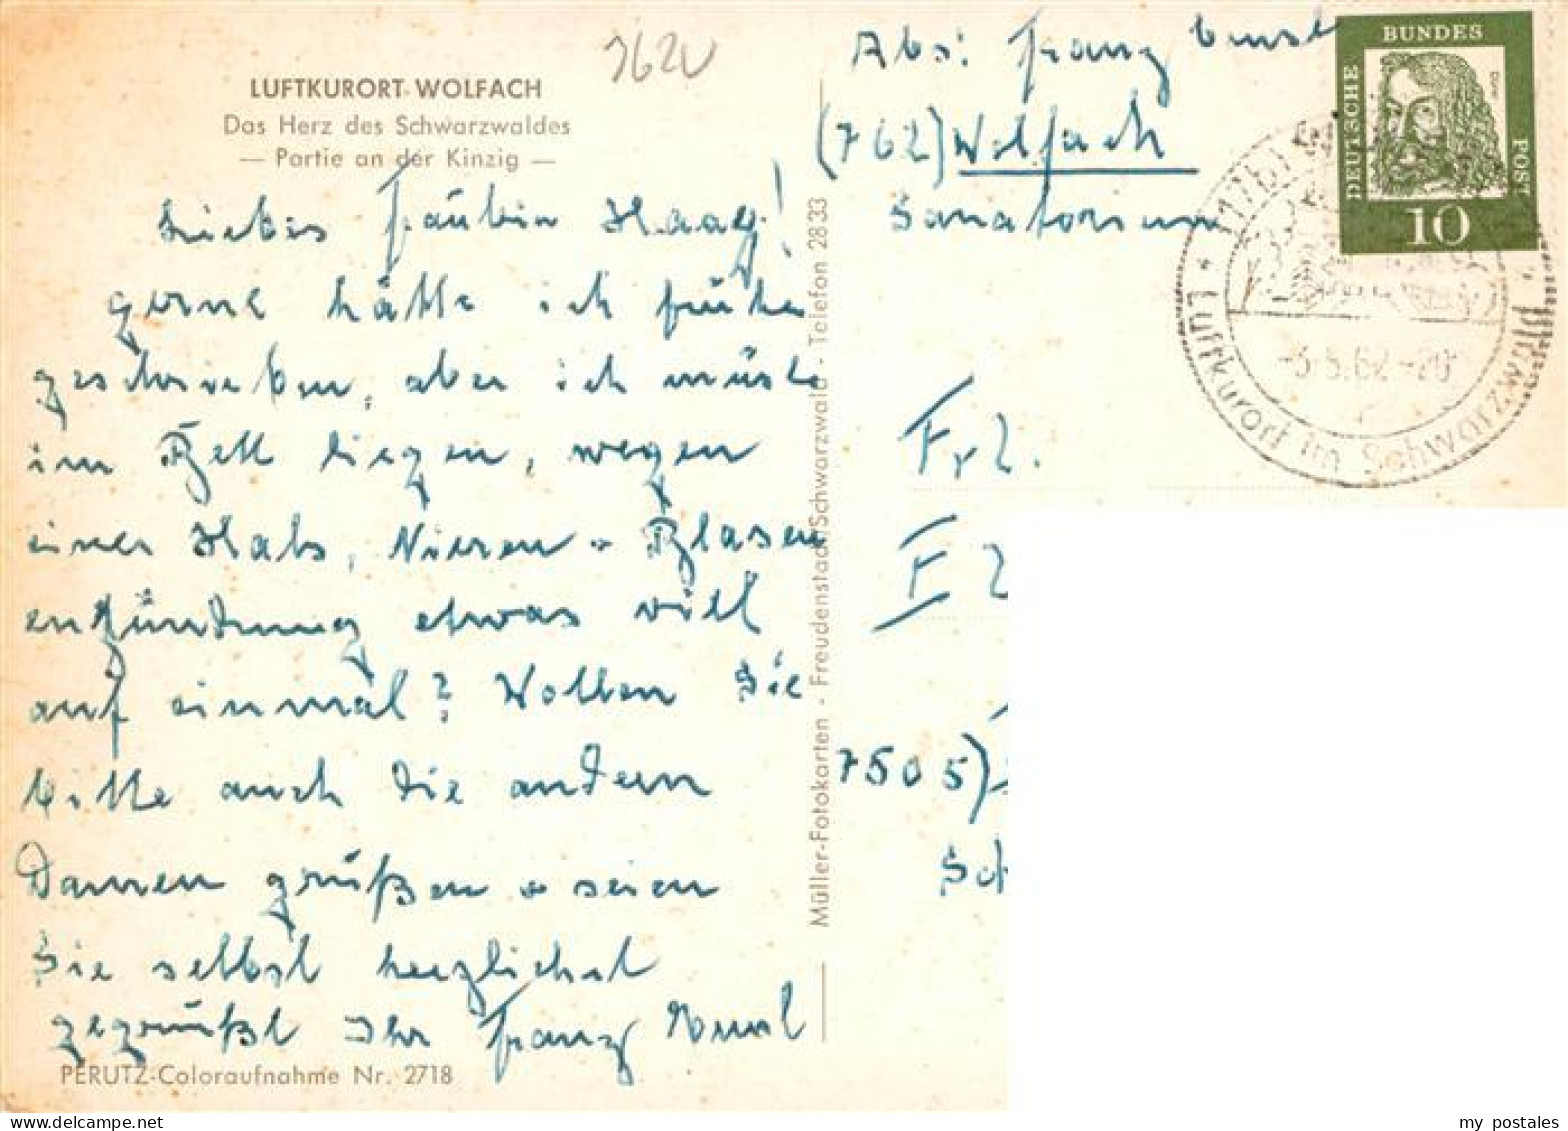 7620
LUFTKURORT WOLFACH
Das Herz des Schwarzwaldes
— Partie an der Kinzig —
Liebes Fräulein Haag!
gerne hätte ich früher
geschrieben, aber ich müste
im Bett liegen, wegen
einer Hals, Nieren + Blasen
enzündung etwas viel
auf einmal? Wollen Sie
bitte auch die andern
Damen grüßen + seien
Sie selbst herzlichst
gegrüßt Ihr Franz
PERUTZ-Coloraufnahme Nr. 2718
Müller-Fotokarten - Freudenstadt/Schwarzwald - Telefon 2833
Abs: Franz
(762) Wolfach
Sanatorium
DEUTSCHE BUNDES POST
Dürer
10
-3.5.62-20
Luftkurort im Schwarzwald
Frl.
F
7505)
Sch
my postales